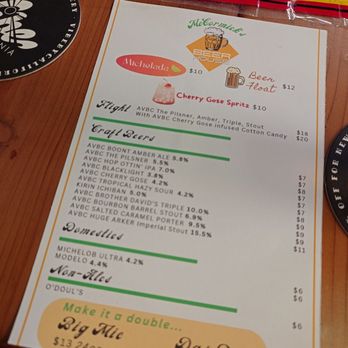 McCormick's
BEER
Michelada $10
Beer Float $12
Cherry Gose Spritz $10
Flight AVBC The Pilsner, Amber, Triple, Stout $18
With AVBC Cherry Gose infused Cotton Candy $20
Craft Beers
AVBC BOONT AMBER ALE 5.8% $7
AVBC THE PILSNER 5.5% $7
AVBC HOP OTTIN' IPA 7.0%
AVBC BLACKLIGHT 3.8%
AVBC CHERRY GOSE 4.2%
AVBC TROPICAL HAZY SOUR 4.2%
KIRIN ICHIBAN 5.0%
AVBC BROTHER DAVID'S TRIPLE 10.0%
AVBC BOURBON BARREL STOUT 6.9%
AVBC SALTED CARAMEL PORTER 9.5% $9
AVBC HUGE ARKER Imperial Stout 15.5% $11
Domestics
MICHELOB ULTRA 4.2% $6
MODELO 4.4% $6
Non-Alcs
O'DOUL'S $6
Make it a double...
Big Mic
$13 24oz
OFF FOR NEW